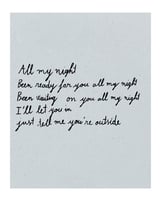 All my night
Been ready for you all my night
Been waiting on you all my night
I'll let you in
just tell me you're outside